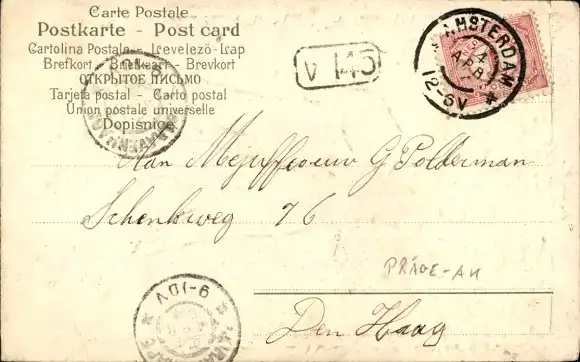 Carte Postale
Postkarte - Post card
Cartolina Postale - Levelező-Lap
Brefkort - Briefkaart - Brevkort
ОТКРЫТОЕ ПИСЬМО
Tarjeta postal - Carto postal
Union postale universelle
Dopisnice
V 145
AMSTERDAM
4
APR
12-6V
Aan Mejuffrouw G Polderman
Schenkweg 76
PRÄGE-AK
9-10V
Den Haag